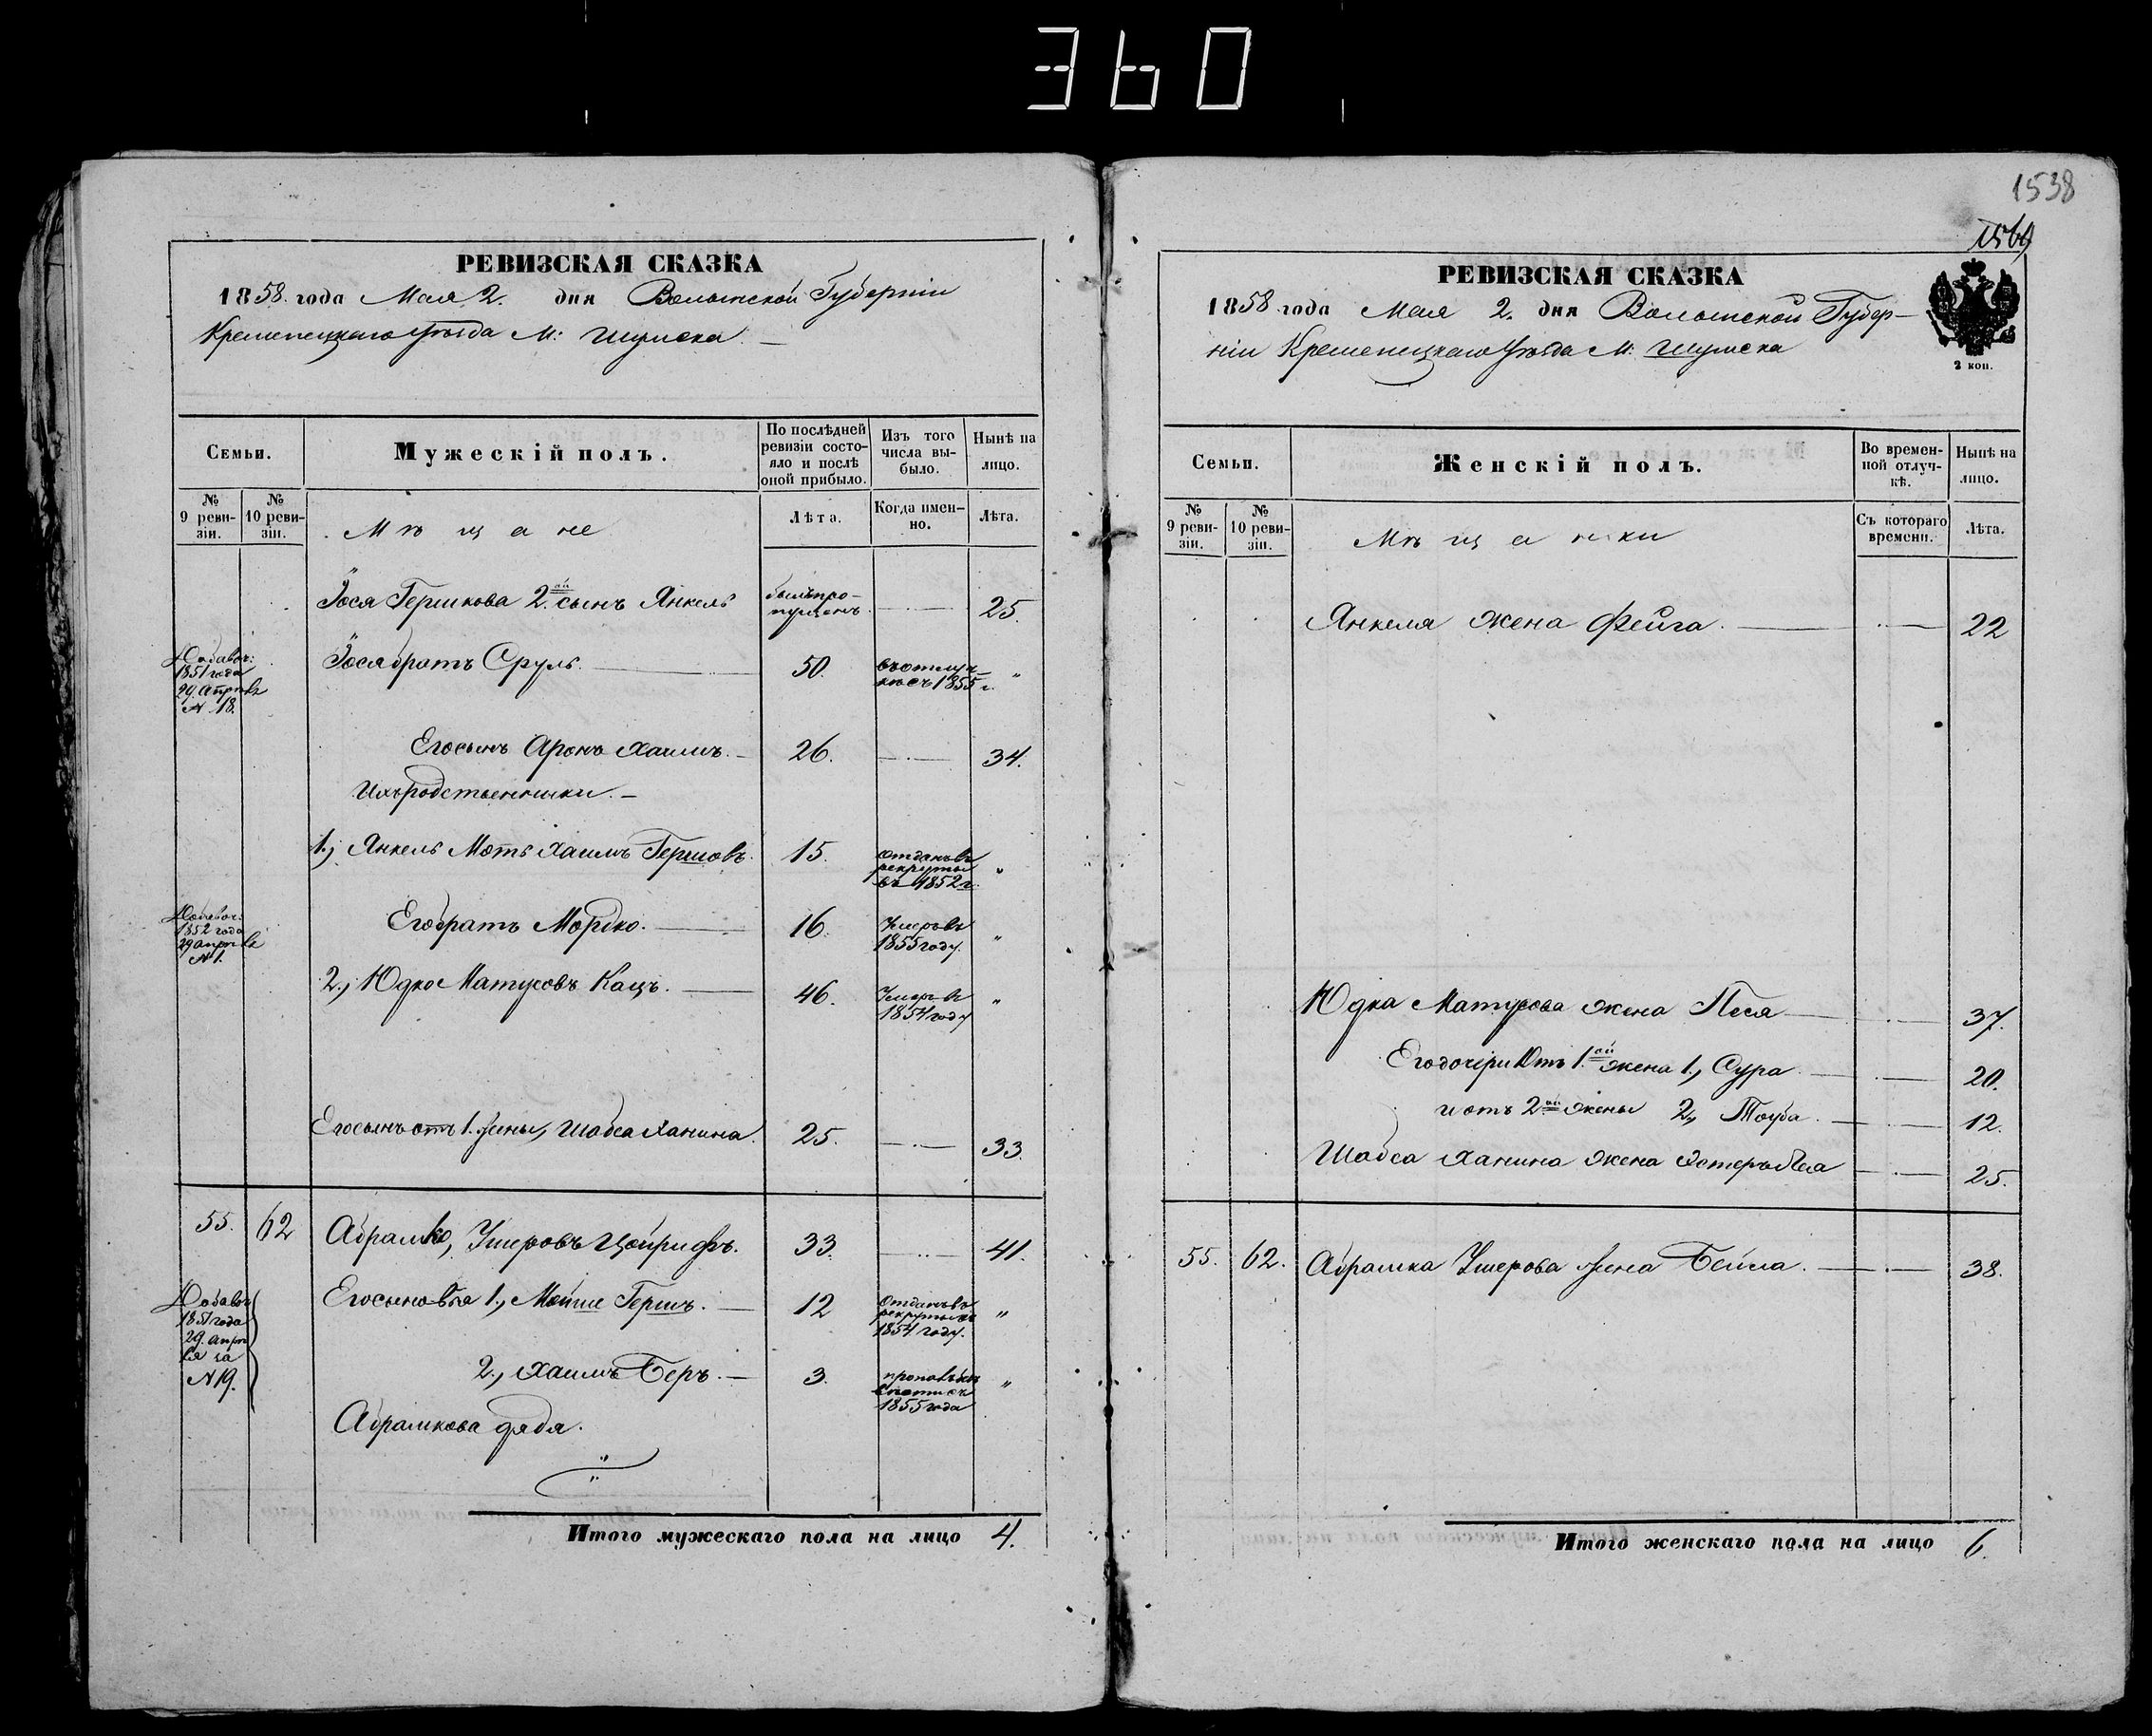 360
1538
1569
РЕВИЗСКАЯ СКАЗКА
1858 года Мая 2. дня Волынской Губерніи
Кременецкаго Уѣзда М: Шумска.
Семьи.
Мужескій полъ.
По послѣдней ревизіи состояло и послѣ оной прибыло.
Изъ того числа выбыло.
Нынѣ на лицо.
№ 9 ревизіи.
№ 10 ревизіи.
Мѣщане
Лѣта.
Когда именно.
Лѣта.
Іося Гершкова 2ой сынъ Янкель былъ пропущенъ 25.
Добавоч: 1851 года 29. Апрѣля N 18.
Іося братъ Сруль. 50. въ отлучкѣ съ 1855 г. "
Его сынъ Аронъ Хаимъ. 26. 34.
Ихъ родственники.
1., Янкель Моть Хаимъ Гершовъ. 15. отданъ въ рекруты въ 1852 г. "
Добавоч: 1852 года 29 апрѣля N 1.
Его братъ Мордко. 16. Умеръ въ 1855 году. "
2., Юдко Матусовъ Кацъ. 46. Умеръ въ 1854 году "
Его сынъ отъ 1. жены, Шабса Ханина. 25. 33.
55. 62 Абрамко, Умеровъ Цойрифъ. 33. 41.
Добавоч 1851 года 29. апрѣля за N 19.
Его сыновья 1., Мойше Гершъ. 12 Отданъ въ рекруты въ 1854 году. "
2., Хаимъ Беръ. 3. 1855 года "
Абрамкова дядя.
Итого мужескаго пола на лицо 4.
РЕВИЗСКАЯ СКАЗКА
1858 года Мая 2. дня Волынской Губер-
ніи Кременецкаго Уѣзда М: Шумска
2 коп.
Семьи.
Женскій полъ.
Во временной отлучкѣ.
Нынѣ на лицо.
№ 9 ревизіи.
№ 10 ревизіи.
Мѣщанки
Съ котораго времени.
Лѣта.
Янкеля жена Фейга. 22
Юдка Матусова жена Песя 37.
Его дочери Отъ 1.ой жена 1., Сура. 20.
и отъ 2ой жены 2., Тоуба. 12.
Шабса Ханина жена Эстеръ 25.
55. 62. Абрамка Умерова жена Бейла. 38.
Итого женскаго пола на лицо 6.